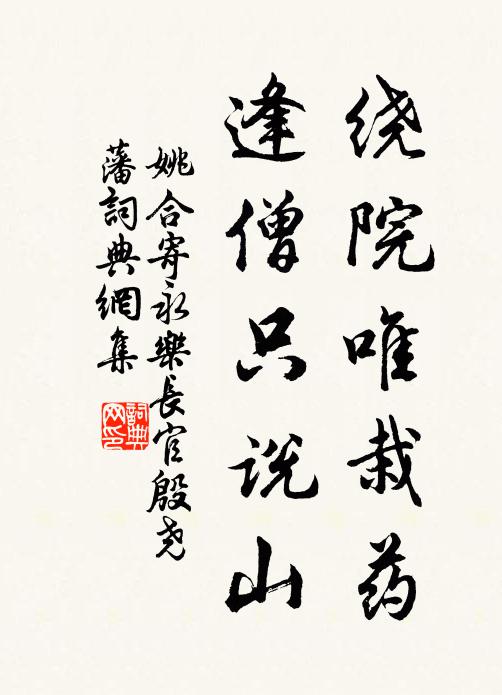 绕院唯栽药
逢僧只说山
姚合寄永樂長官殷尧
藩詞典網集
詞典
网印